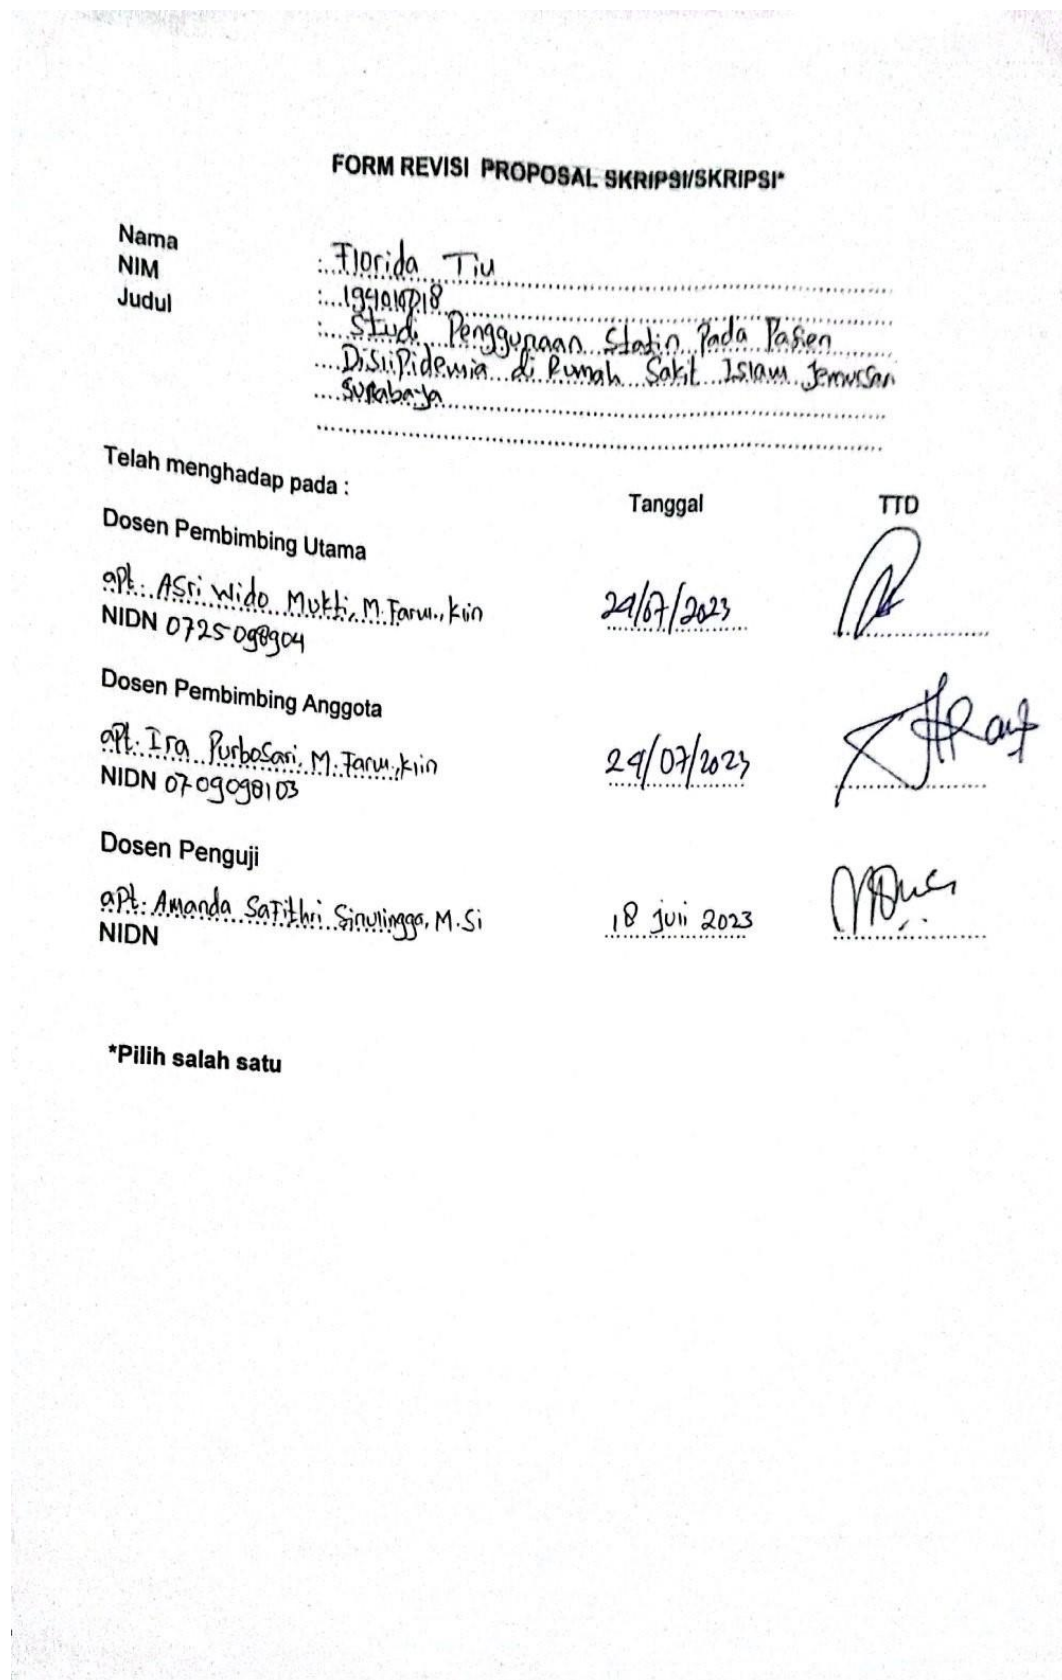 FORM REVISI PROPOSAL SKRIPSI/SKRIPSI*
Nama : Florida Tiu
NIM :
Judul : Studi Penggunaan Statin Pada Pasien
Dislipidemia di Rumah Sakit Islam Jemursari
Surabaya
Telah menghadap pada :
Tanggal TTD
Dosen Pembimbing Utama
apt. Asri Wido Mukti, M.Farm., Klin 24/07/2023
NIDN 0725098904
Dosen Pembimbing Anggota
apt. Ira Purbosari, M.Farm., Klin 24/07/2023
NIDN 0709098103
Dosen Penguji
apt. Amanda Safithri Sinulingga, M.Si 18 juli 2023
NIDN
*Pilih salah satu